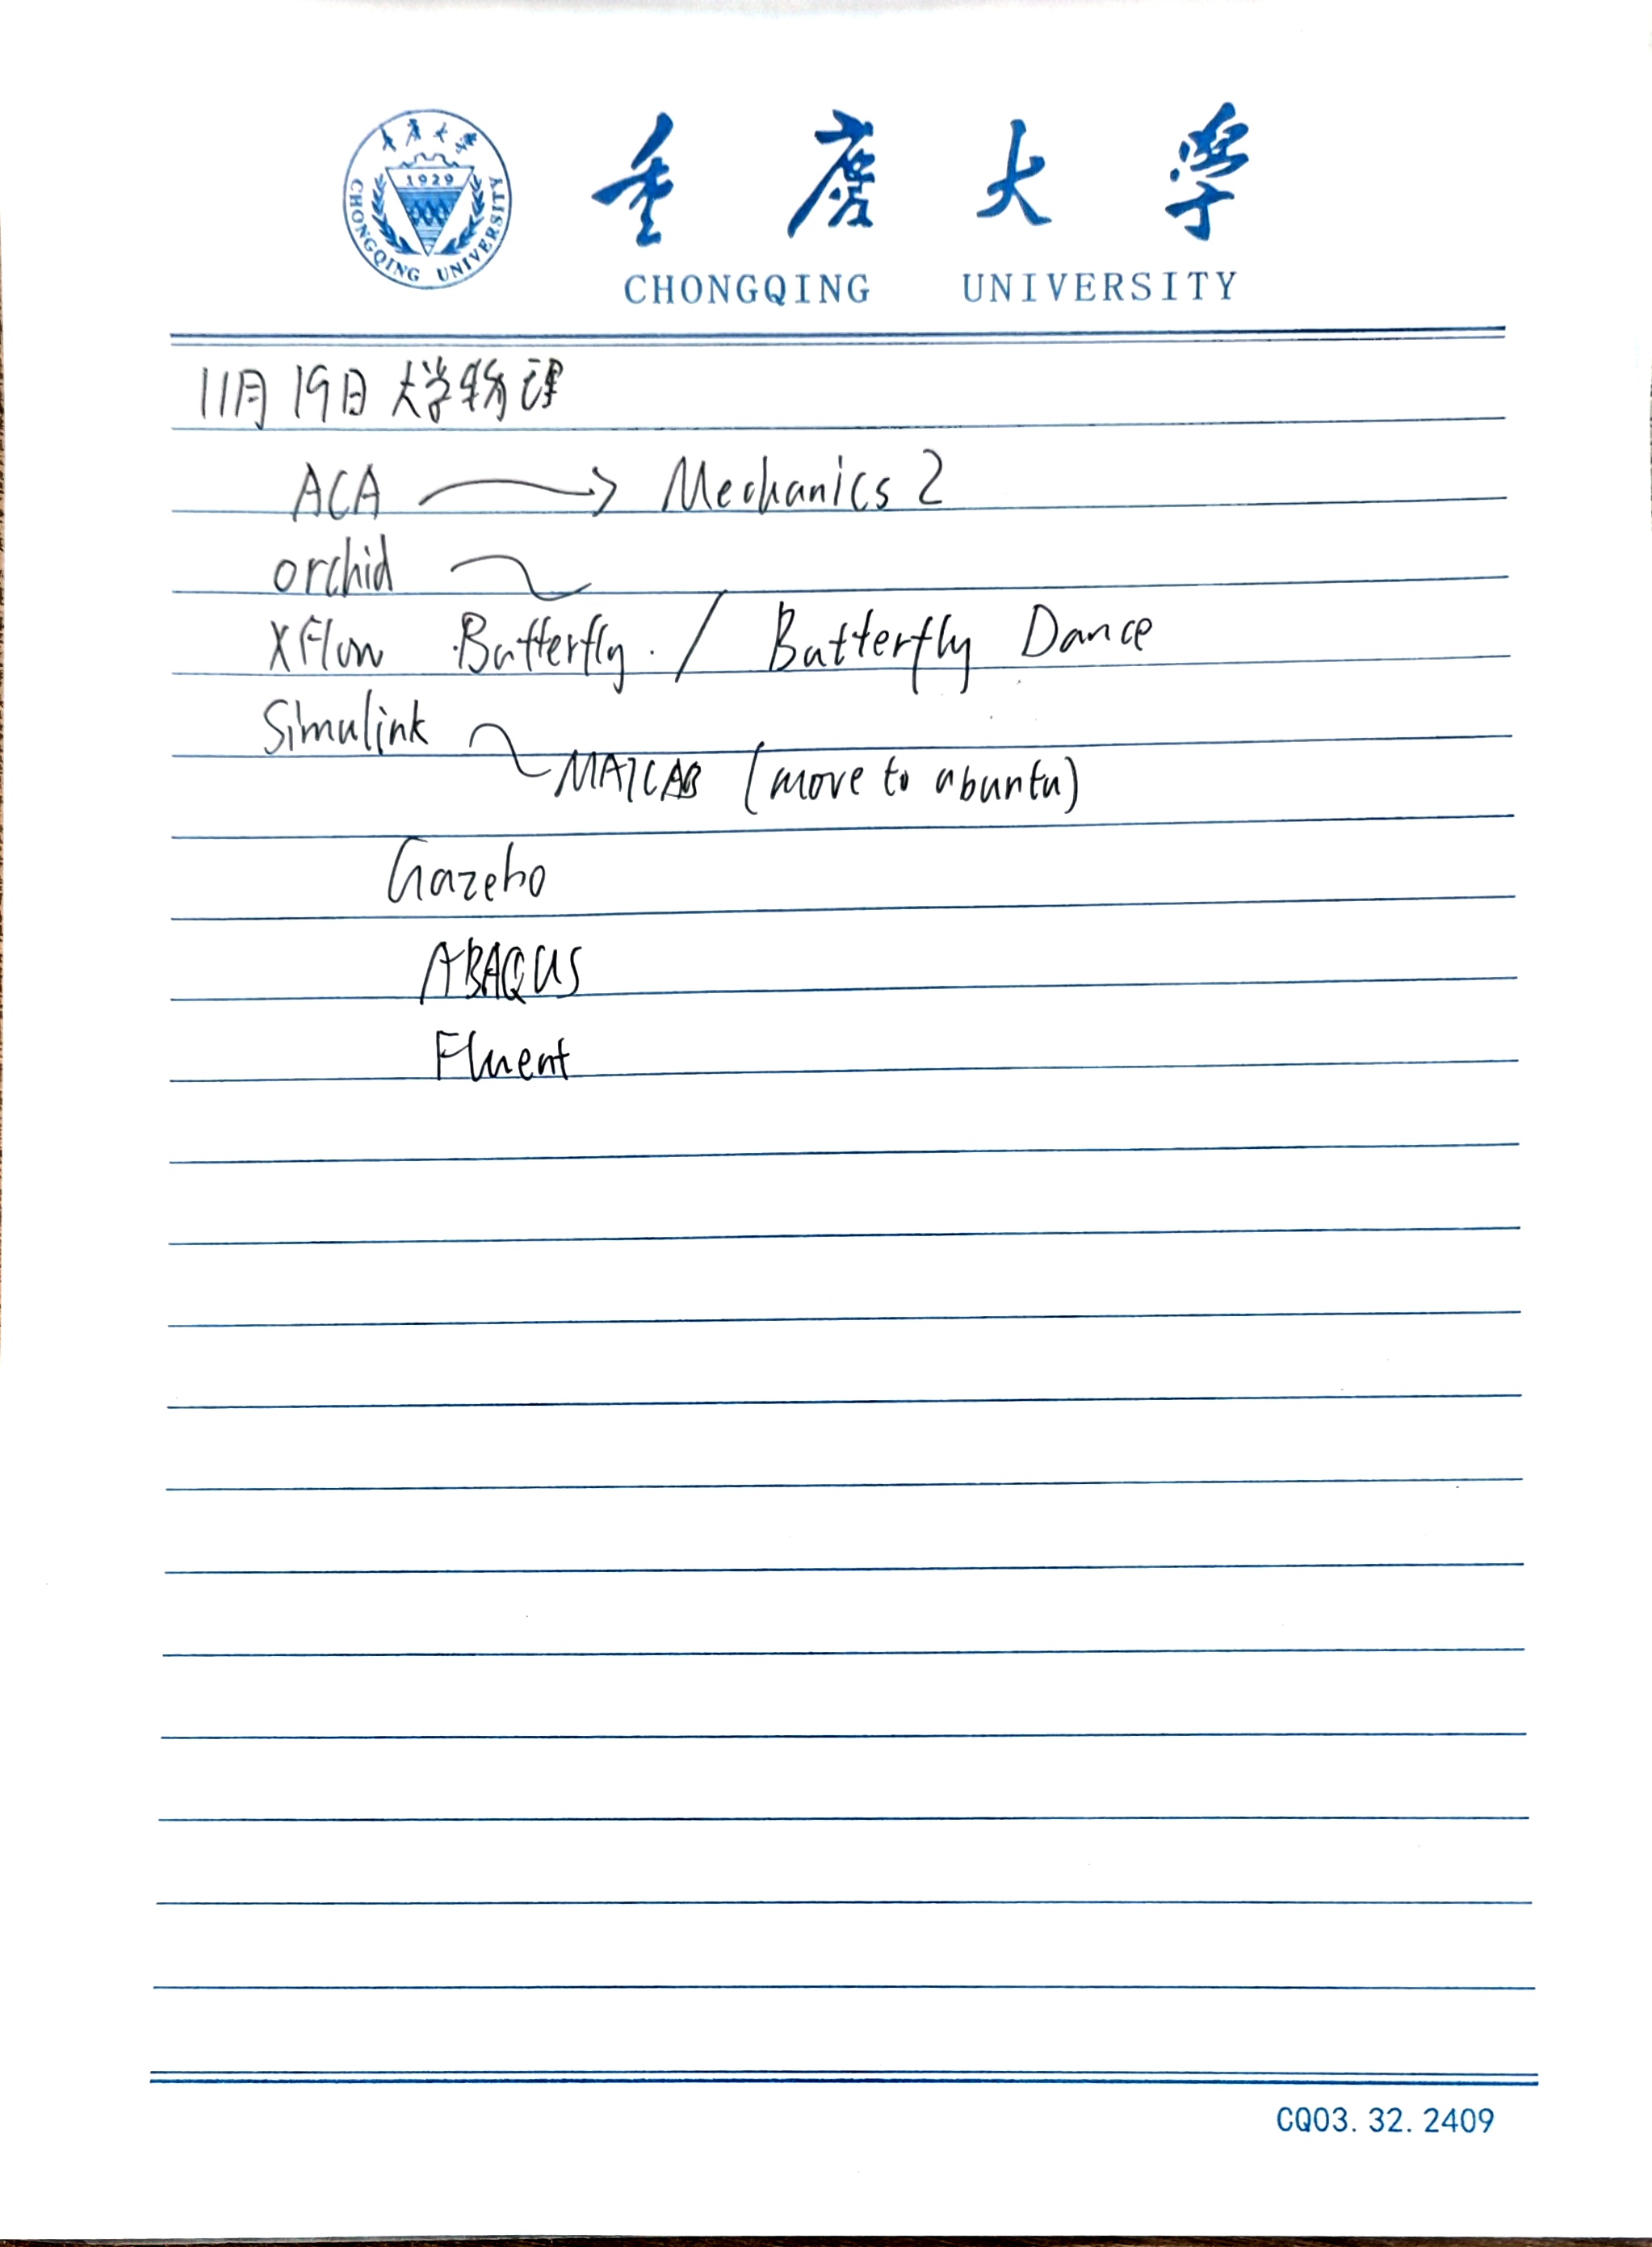 重慶大学
1929
CHONGQING UNIVERSITY
重慶大学
CHONGQING UNIVERSITY
11月19日 大学物理
ACA → Mechanics 2
orchid
XFlow Butterfly. / Butterfly Dance
Simulink
MATLAB (move to ubuntu)
Gazebo
ABAQUS
Fluent
CQ03.32.2409